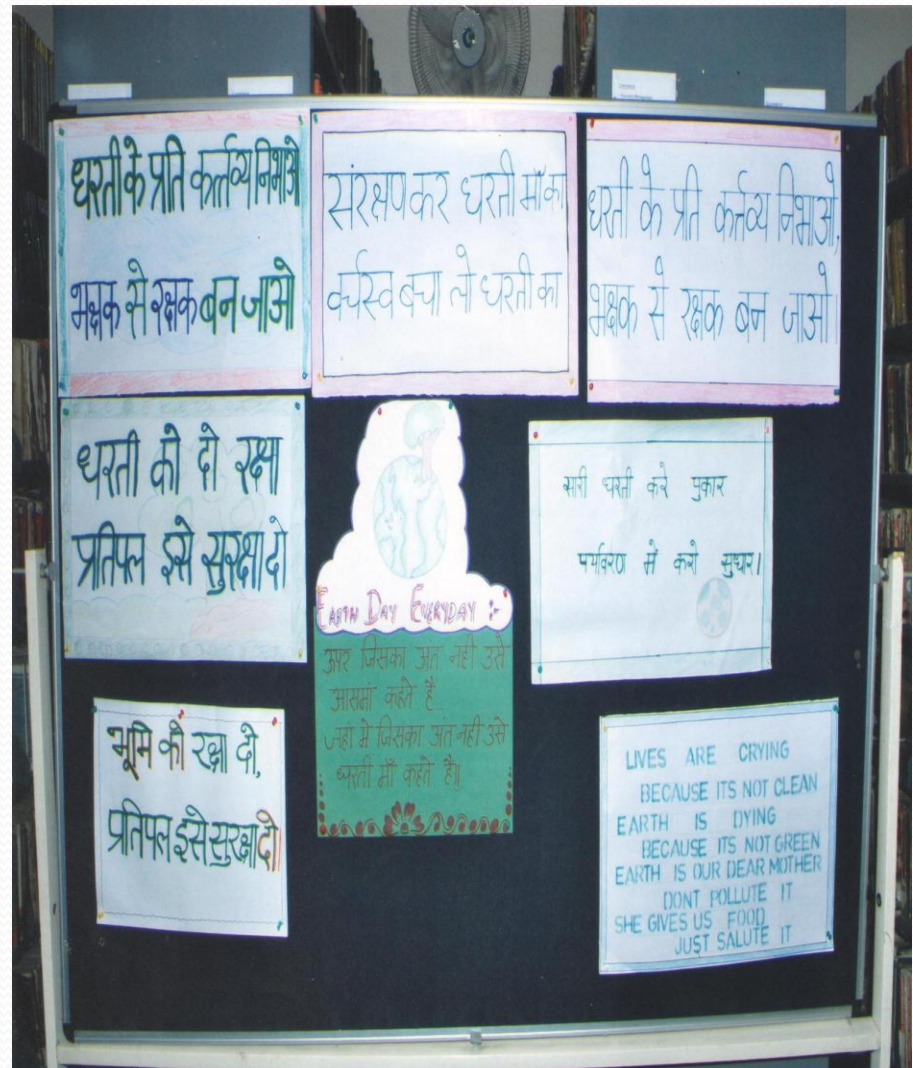 धरती के प्रति कर्त्तव्य निभाओ
भक्षक से रक्षक बन जाओ
संरक्षण कर धरती माँ का
वर्चस्व बचा लो धरती का
धरती के प्रति कर्त्तव्य निभाओ,
भक्षक से रक्षक बन जाओ।
धरती को दो रक्षा
प्रतिपल इसे सुरक्षा दो
EARTH DAY EVERYDAY :-
ऊपर जिसका अंत नही उसे
आसमां कहते है...
जहां मे जिसका अंत नही उसे
धरती माँ कहते है॥
सारी धरती करे पुकार
पर्यावरण मे करो सुधार।
भूमि को रक्षा दो,
प्रतिपल इसे सुरक्षा दो।
LIVES ARE CRYING
BECAUSE ITS NOT CLEAN
EARTH IS DYING
BECAUSE ITS NOT GREEN
EARTH IS OUR DEAR MOTHER
DONT POLLUTE IT
SHE GIVES US FOOD
JUST SALUTE IT